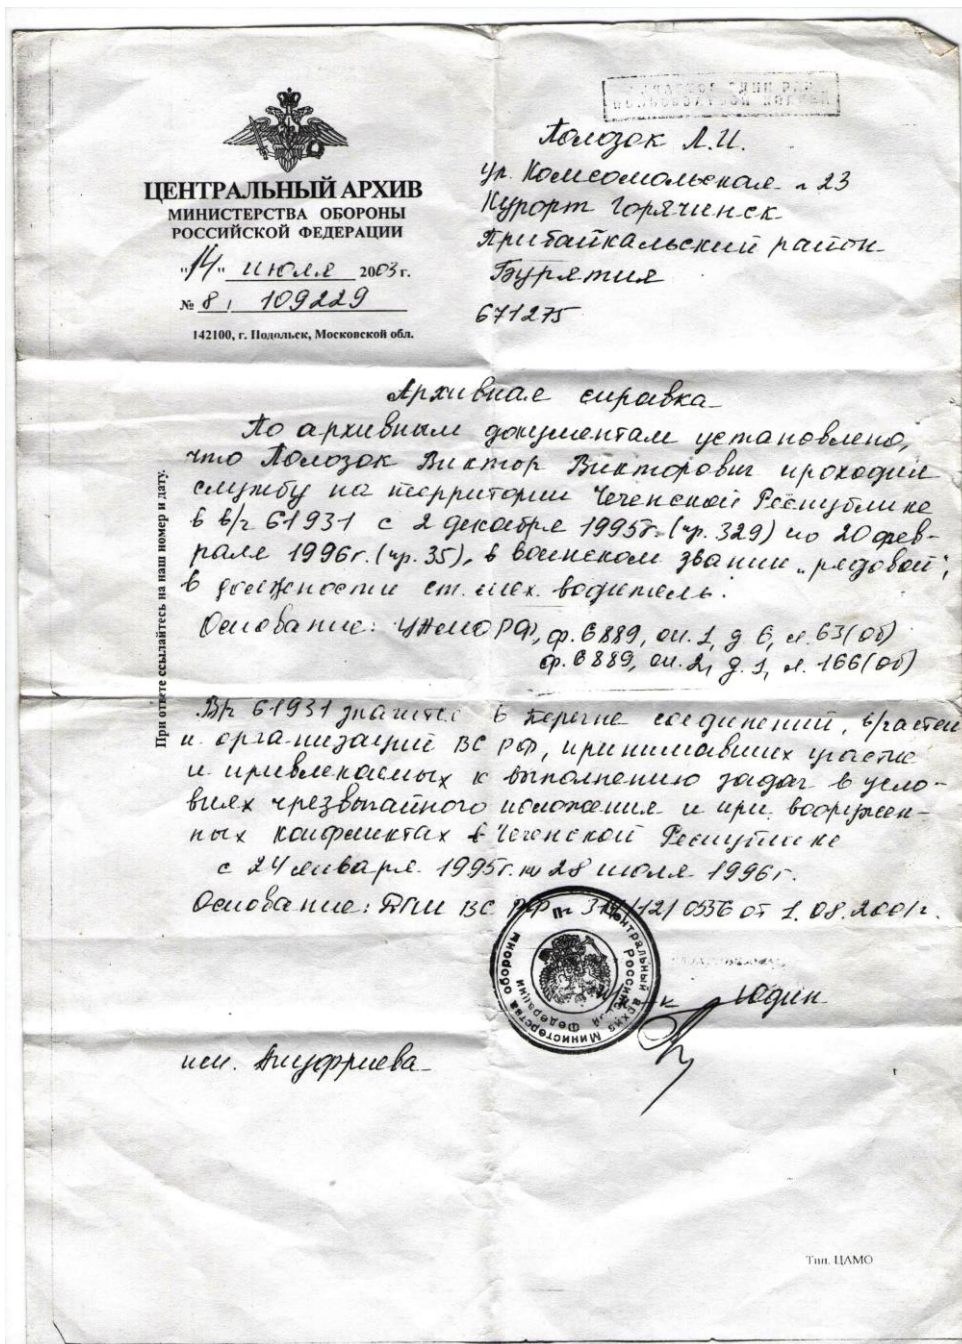 ЦЕНТРАЛЬНЫЙ АРХИВ
МИНИСТЕРСТВА ОБОРОНЫ
РОССИЙСКОЙ ФЕДЕРАЦИИ
"14" июля 2003 г.
№ 8/ 109229
142100, г. Подольск, Московской обл.
Полозок Л.И.
ул. Комсомольская 23
Курорт Горячинск
Прибайкальский район
Бурятия
671275
Архивная справка
По архивным документам установлено,
что Полозок Виктор Викторович проходил
службу на территории Чеченской Республике
в в/ч 61931 с 2 декабря 1995г. (пр. 329) по 20 фев-
раля 1996г. (пр. 35), в воинском звании „рядовой",
в должности ст. мех. водитель.
Основание: ЦАМО РФ, ф. 6889, оп. 1, д 6, л. 63(об)
ф. 6889, оп. 2, д. 1, л. 166(об)
В/ч 61931 значится в перечне соединений, в/частей
и организаций ВС РФ, принимавших участие
и привлекаемых к выполнению задач в усло-
виях чрезвычайного положения и при вооружен-
ных конфликтах в Чеченской Республике
с 24 января 1995г. по 28 июля 1996г.
Основание: ВС РФ от 1.08.2001г.
Юдин
исп. Ануфриева
При ответе ссылайтесь на наш номер и дату.
Центральный архив Министерства обороны
Российской Федерации
Тип. ЦАМО